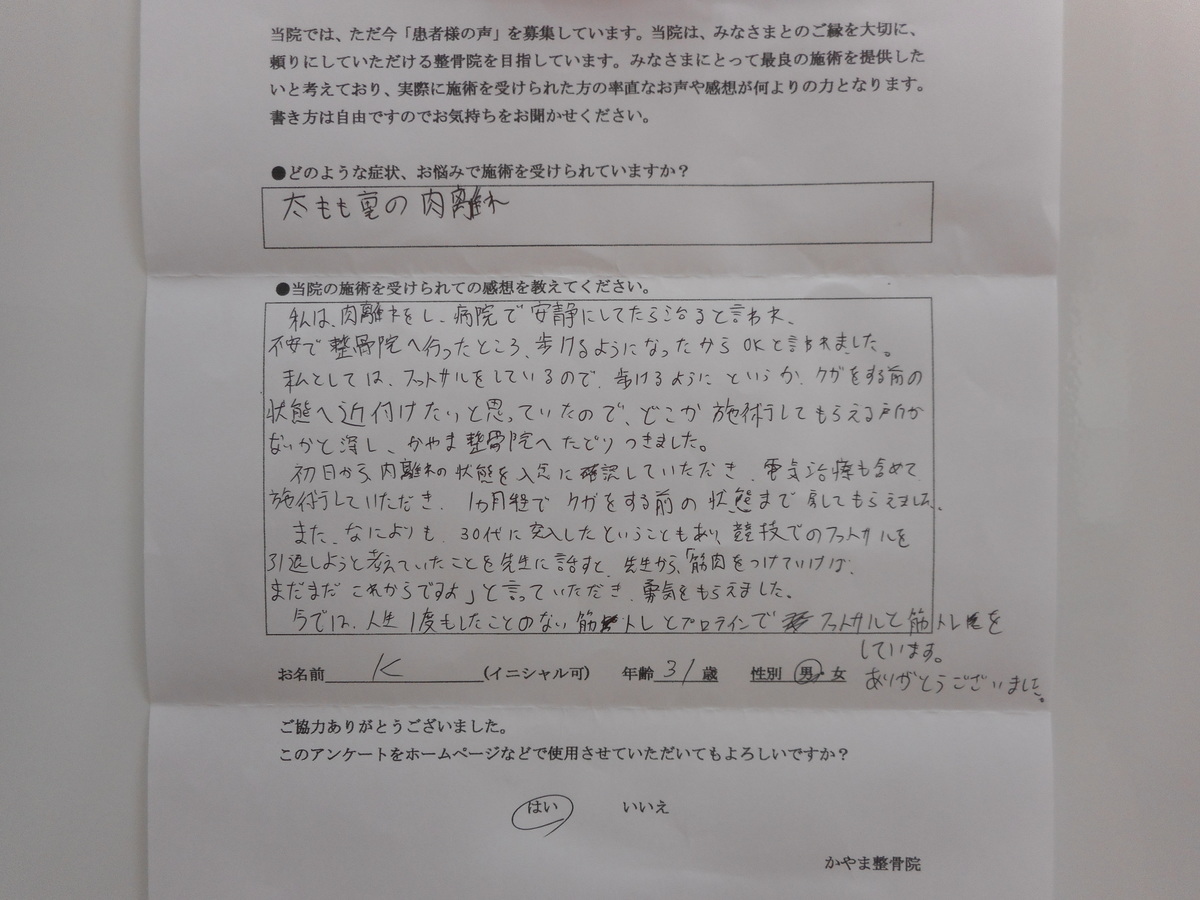 当院では、ただ今「患者様の声」を募集しています。当院は、みなさまとのご縁を大切に、
頼りにしていただける整骨院を目指しています。みなさまにとって最良の施術を提供した
いと考えており、実際に施術を受けられた方の率直なお声や感想が何よりの力となります。
書き方は自由ですのでお気持ちをお聞かせください。
●どのような症状、お悩みで施術を受けられていますか？
太もも裏の肉離れ
●当院の施術を受けられての感想を教えてください。
私は、肉離れをし、病院で安静にしてたら治ると言われ、
不安で整骨院へ行ったところ、歩けるようになったからOKと言われました。
私としては、フットサルをしているので、歩けるようにというか、ケガをする前の
状態へ近付けたいと思っていたので、どこか施術してもらえる所が
ないかと探し、かやま整骨院へたどりつきました。
初日から、肉離れの状態を入念に確認していただき、電気治療も含めて
施術していただき、1ヵ月程でケガをする前の状態まで戻してもらえました。
また、なによりも、30代に突入したということもあり、競技でのフットサルを
引退しようと考えていたことを先生に話すと、先生から、「筋肉をつけていけば、
まだまだこれからですよ」と言っていただき、勇気をもらえました。
今では、人生1度もしたことのない筋トレとプロテインでフットサルと筋トレを
しています。
ありがとうございました。
お名前 K (イニシャル可) 年齢 31 歳 性別 男・女
ご協力ありがとうございました。
このアンケートをホームページなどで使用させていただいてもよろしいですか？
はい いいえ
かやま整骨院